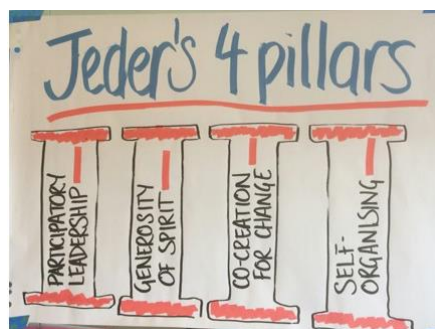 Jeder's 4 pillars
PARTICIPATORY
LEADERSHIP
GENEROSITY
OF SPIRIT
CO-CREATION
FOR CHANGE
SELF-
ORGANISING